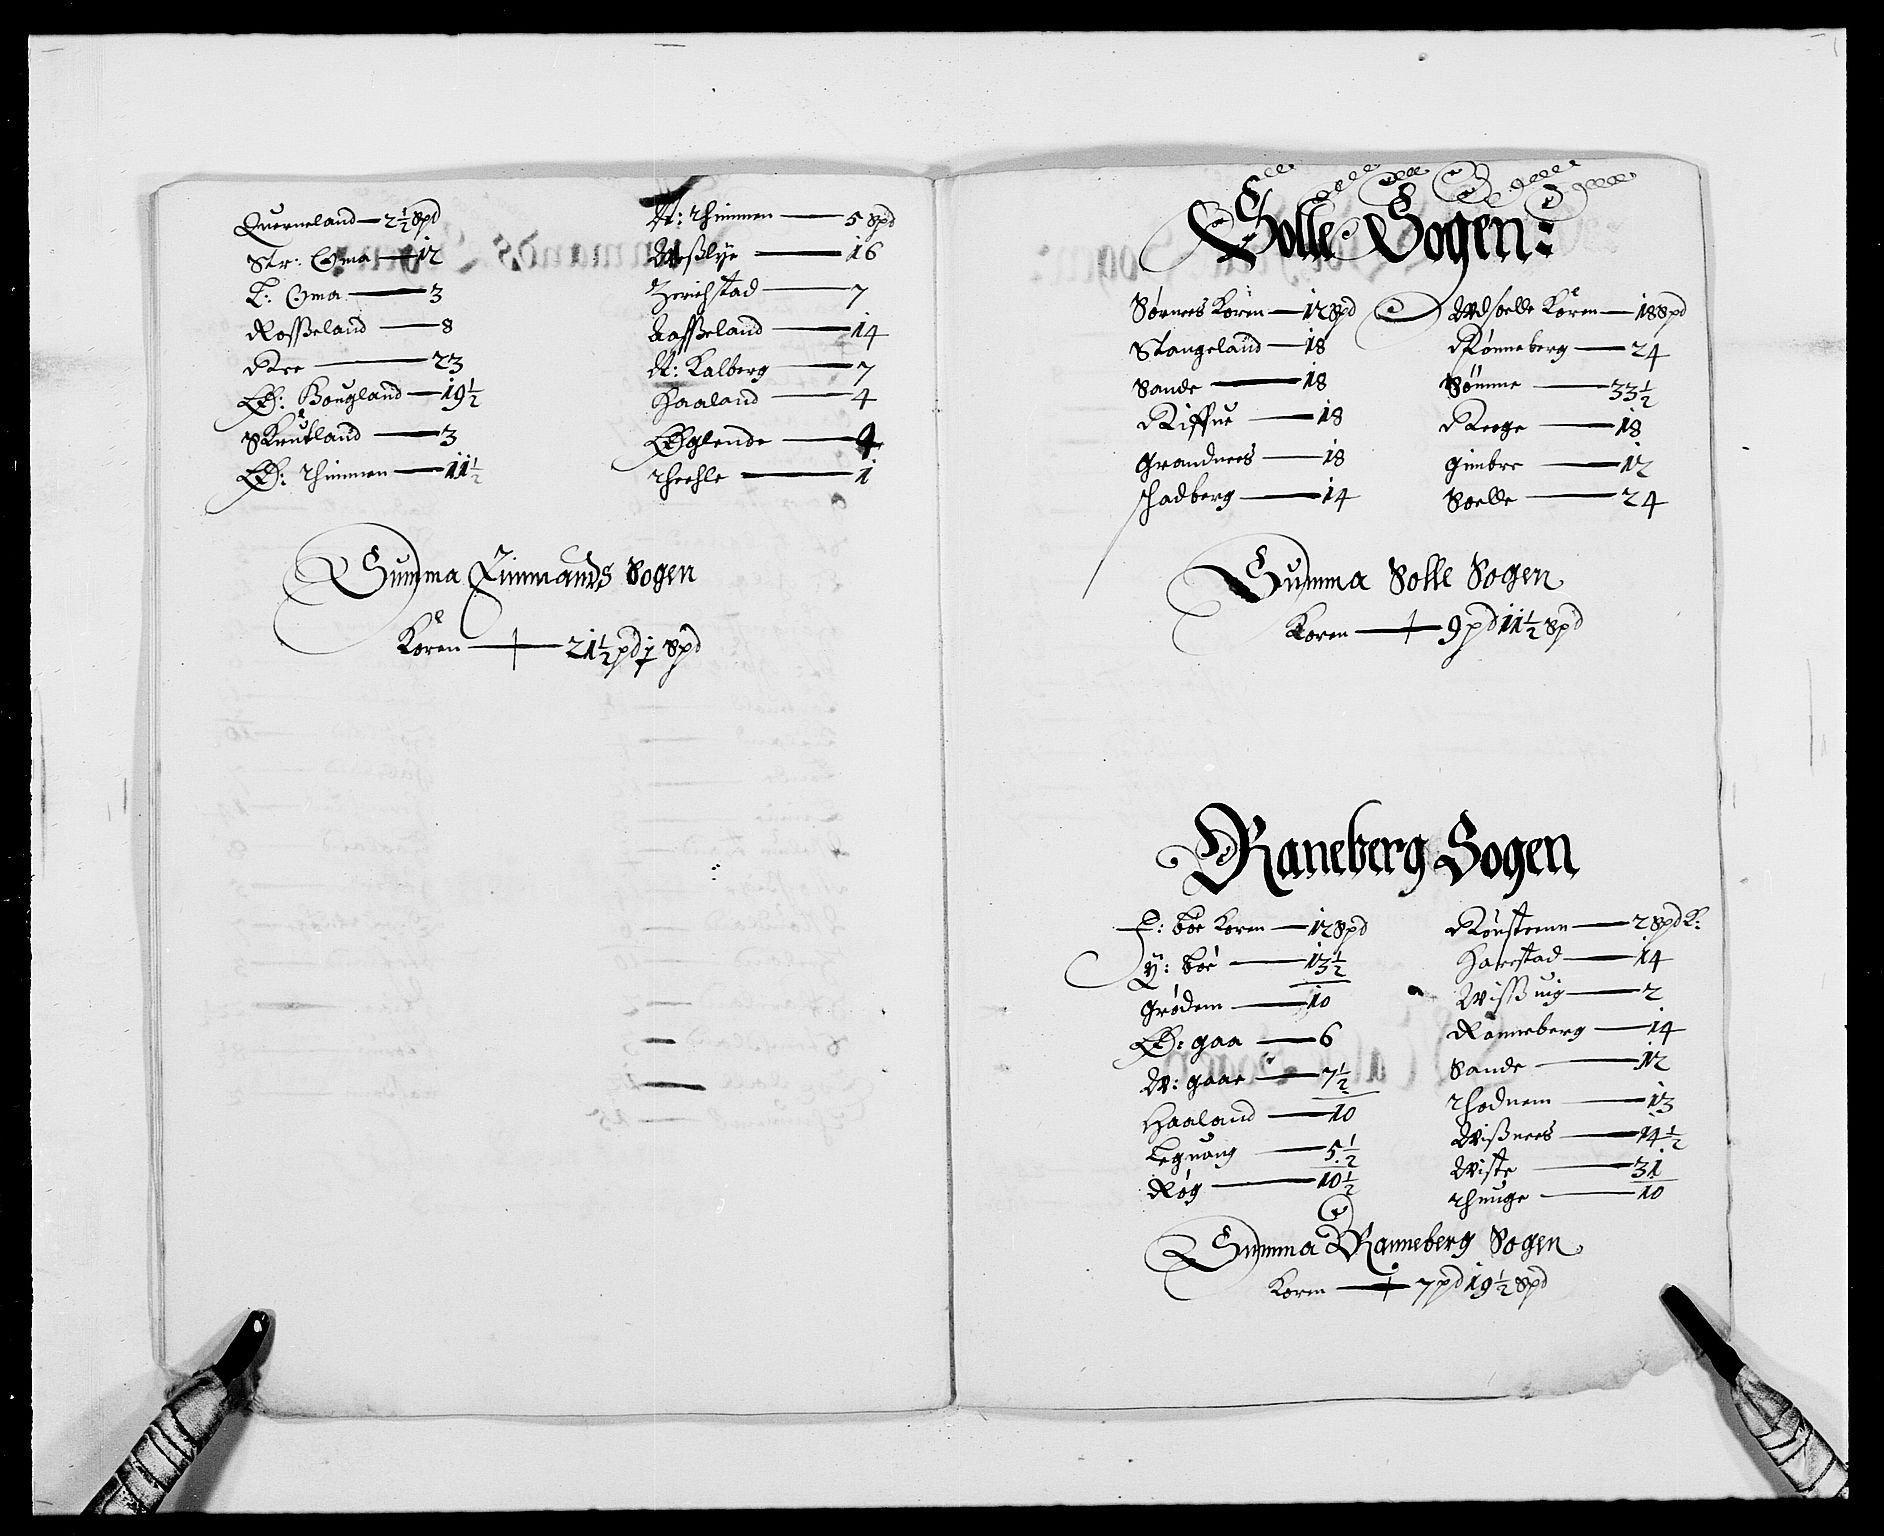 Querneland — 2½ Spd
Str: Oma — 12
L: Oma — 3
Rosseland — 8
Kre — 23
Ø: Hougland — 19½
Skrutland — 3
Ø: Thimmen — 11½
N: Thimmen — 5 Spd
Weßlye — 16
Zerichstad — 7
Aasseland — 14
N: Kalberg — 7
Haaland — 4
Øglende — 4
Theehle — 1
Summa Timmands Sogen
Koren — 21½ pd 1 Spd
Solle Sogen:
Sørnees Koren — 12 Spd
Stangeland — 18
Sande — 18
Riffue — 18
Grandnees — 18
Schadberg — 14
Wdsoelle Koren — 18 Spd
Rønneberg — 24
Sømme — 33½
Kroge — 18
Gimbre — 12
Soelle — 24
Summa Solle Sogen
Koren — 9 pd 11½ Spd
Raneberg Sogen
L: Bøe Koren — 12 Spd
Y: Bøe — 13½
Grødem — 10
Ø: Gaa — 6
W: Gaae — 7½
Haaland — 10
Leguang — 5½
Røg — 10½
Røustreun — 2 Spd K:
Harestad — 14
Wissuig — 2
Ranneberg — 14
Sande — 12
Thodnem — 13
Wißnees — 14½
Wiste — 31
Thunge — 10
Summa Ranneberg Sogen
Koren — 7 pd 19½ Spd